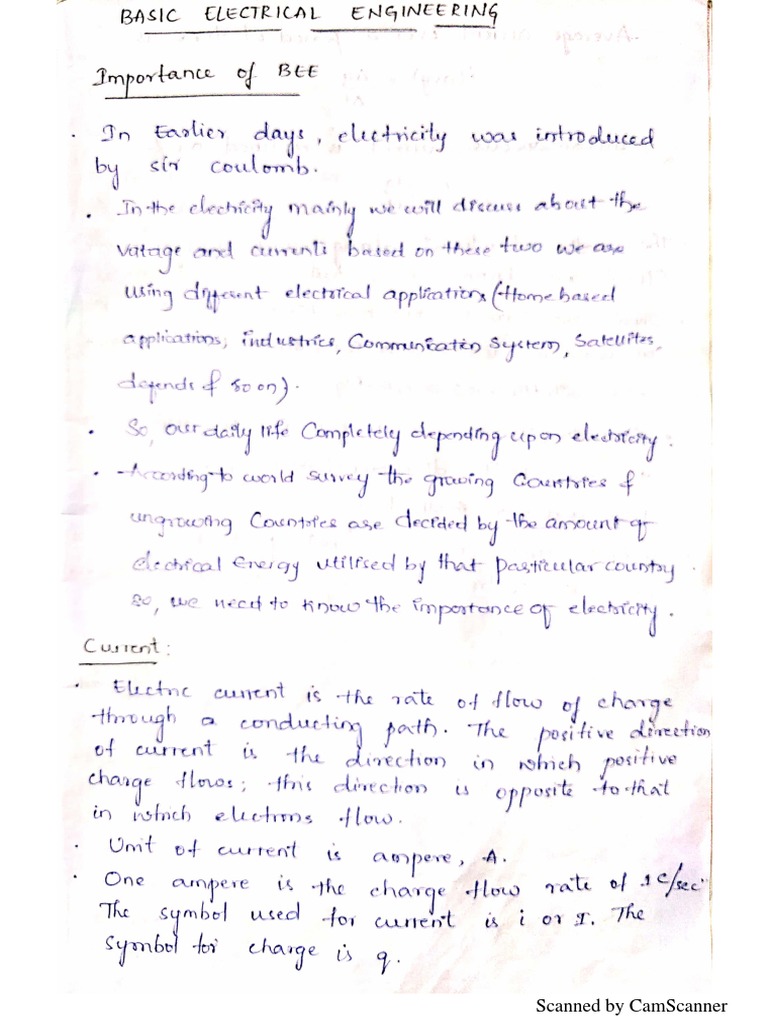 BASIC ELECTRICAL ENGINEERING
Importance of BEE
. In Earlier days, electricity was introduced
by sir coulomb.
. In the electricity mainly we will discuss about the
Voltage and currents based on these two we are
using different electrical applications (Home based
applications, industries, Communication System, Satellites,
depends & so on).
. So, our daily life Completely depending upon electricity.
. According to world survey the growing Countries &
ungrowing Countries are decided by the amount of
electrical energy utilised by that particular country.
so, we need to know the importance of electricity.
Current:
. Electric current is the rate of flow of charge
through a conducting path. The positive direction
of current is the direction in which positive
charge flows; this direction is opposite to that
in which electrons flow.
. Unit of current is ampere, A.
. One ampere is the charge flow rate of 1c/sec"
The symbol used for current is i or I. The
symbol for charge is q.
Scanned by CamScanner